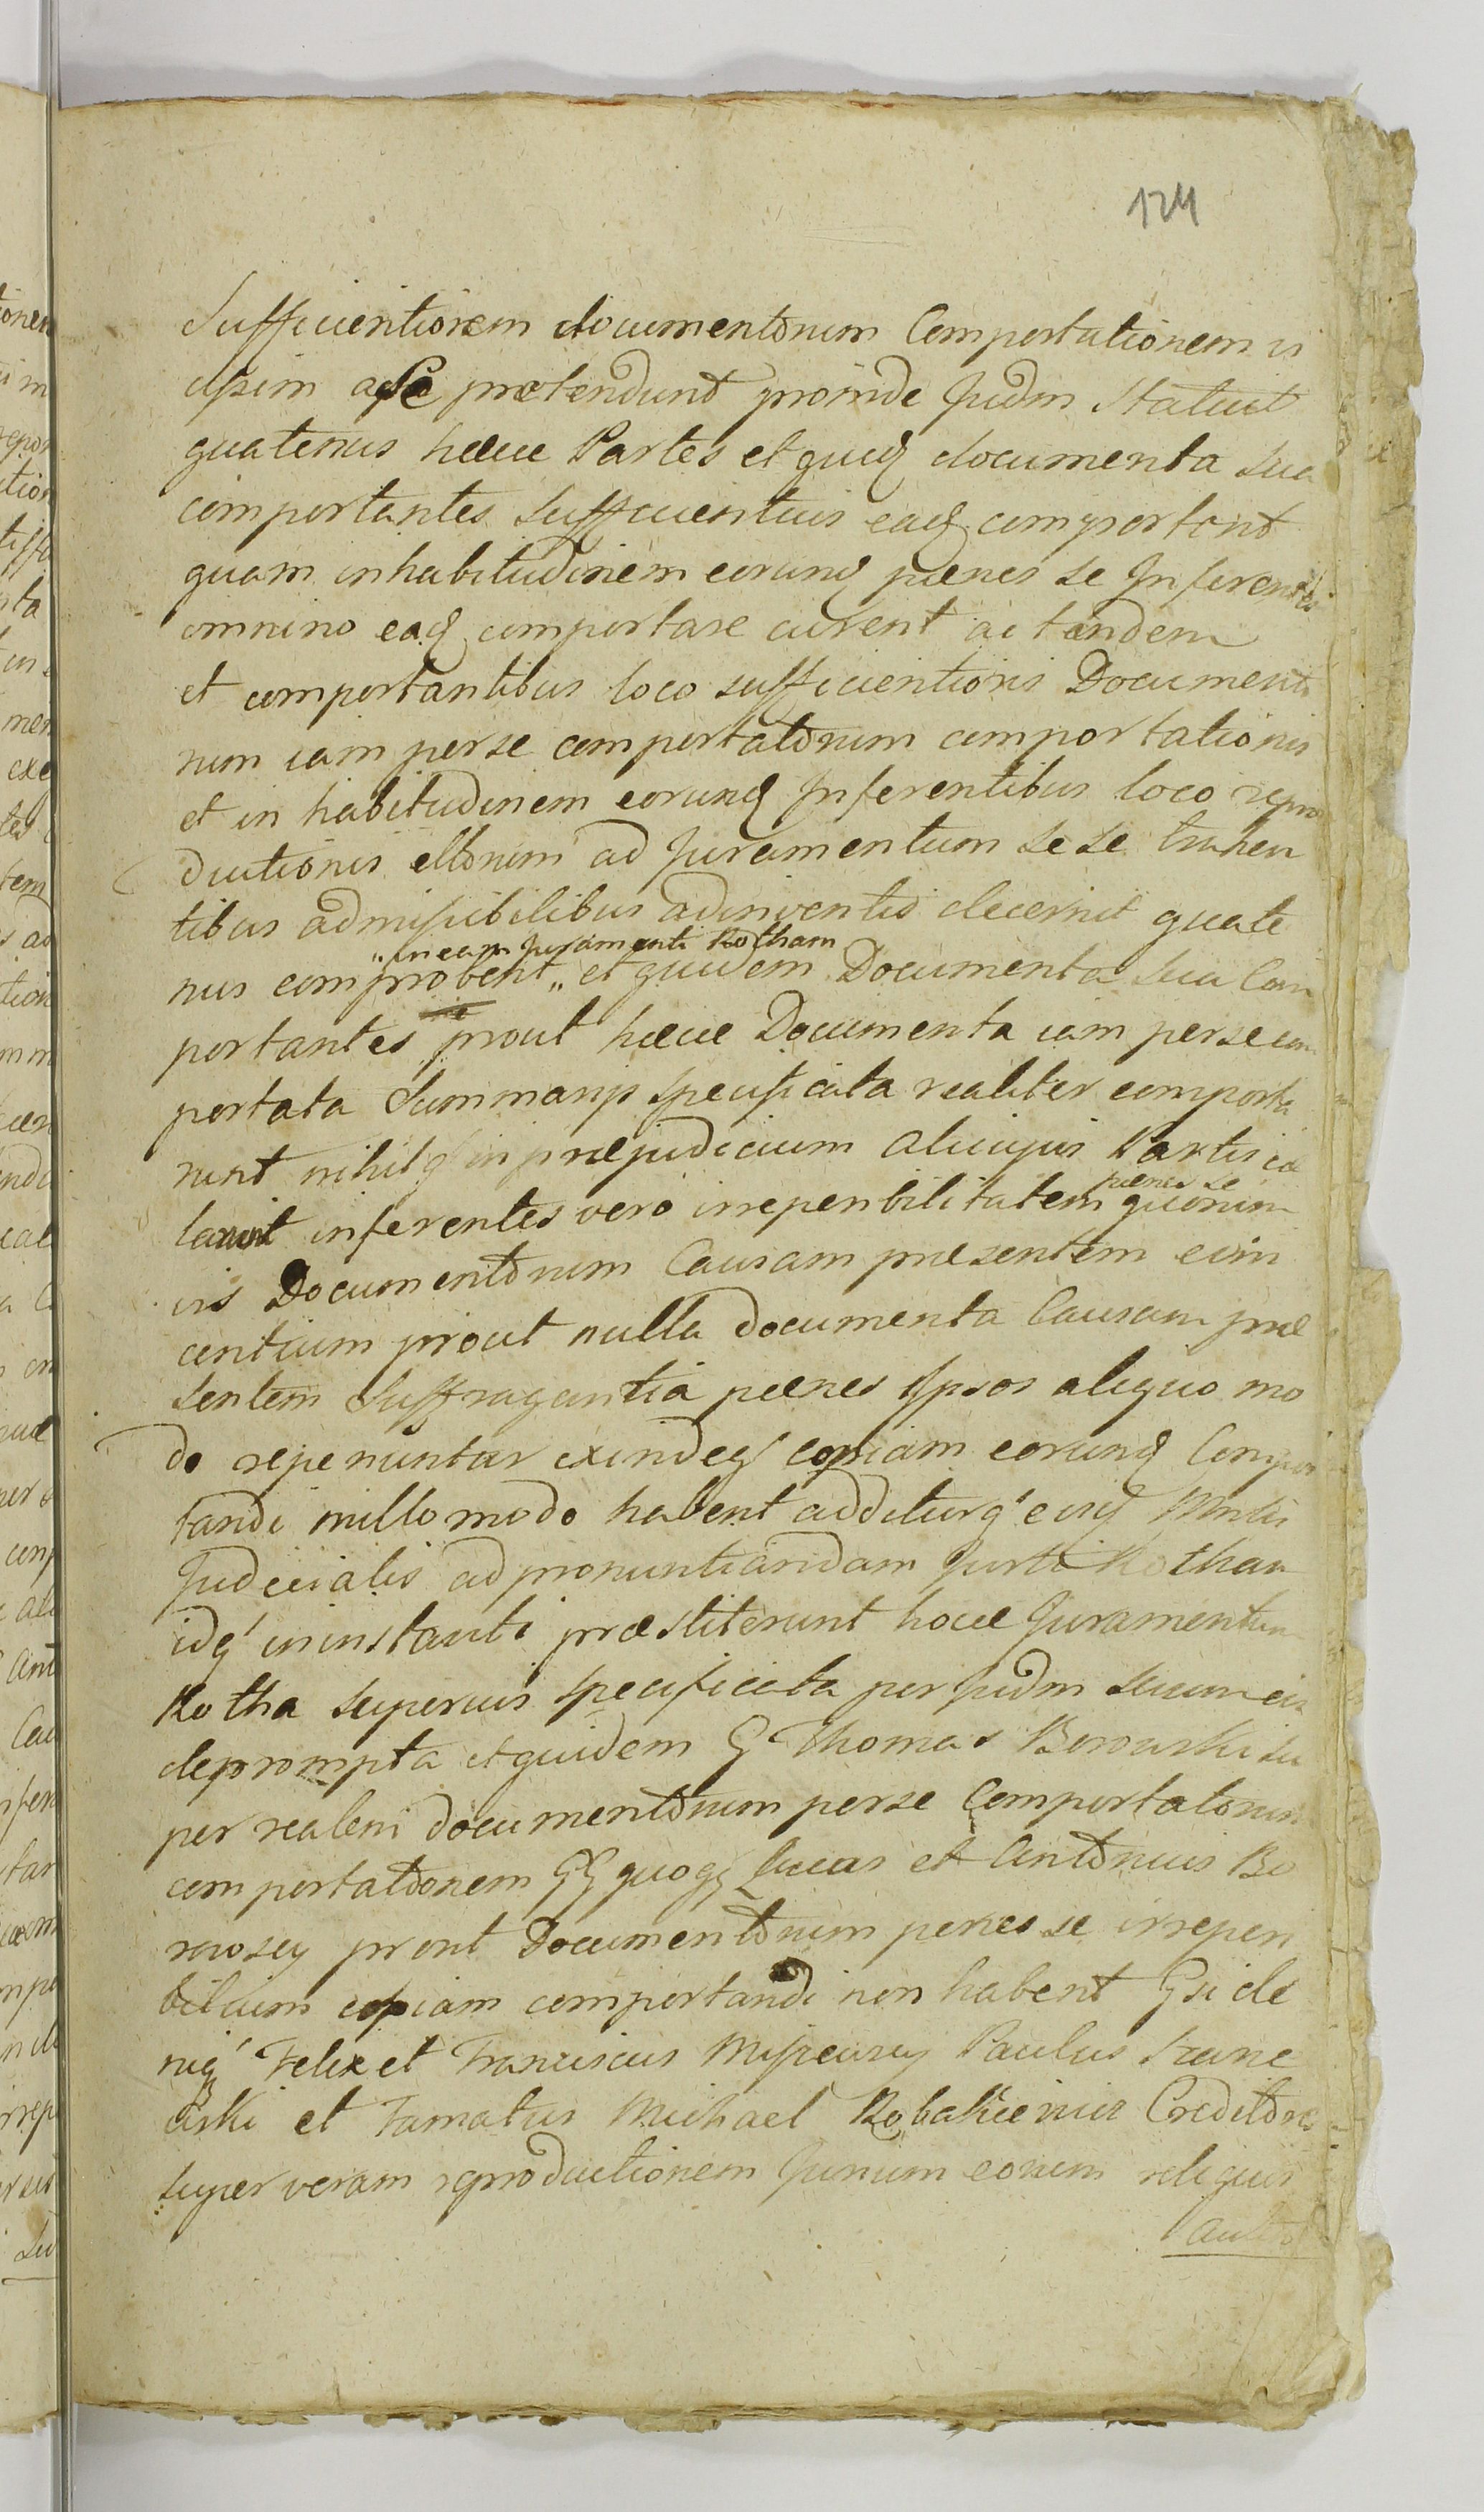 124
Sufficientiorem documentorum Comportationem is
ipsim a se prætendunt proinde Judm Statuit
quatenus hæcce Partes et quidq documenta sua
comportantes sufficientius eadq comportent
quam inhabitudinem eorundq pænes se Inferentes
omnino eadq comportare curent ac tandem
et comportantibus loco sufficientioris Documento
rum iam per se comportatorum comportationis
et in habitudinem eorundq Inferentibus loco repro
ductionis ellorum ad Juramentum sese trahen
tibus admissibilibus adinventis decernit quate
„ in eam Juramenti Rotham
nus comprobent „ et quidem Documenta sua Com
portantes prout hæcce Documenta iam per se com
portata Summarijs specificata realiter comporta
runt nihilq in præjudicium alicujus Partis cæ
larunt inferentes vero irreperibilitatem pænes se quorum
vis Documentorum Causam præsentem evin
centium prout nulla documenta Causam præ
sentem Suffragantia pænes Ipsos aliquo mo
do reperiuntur exindeq copiam eorundq Compor
tandi nullo modo habent additurq eisdq Mntlis
Judicialis ad pronuntiandam Jurti Rotham
idq in instanti præstiterunt hocce Juramentum
Rotha superius specificata per Judm suum eis
deprompta et quidem G Thomas Borowski su
per realem documentorum per se Comportatorum
comportationem GG quoq Lucas et Antonius Bo
rowscy prout Documentorum penes se irreperi
bilium copiam comportandi non habent Gsi de
niq Felix et Franciscus Paulus
et Famatus Michael Creditores
super veram reproductionem Jurium eorum reliquis